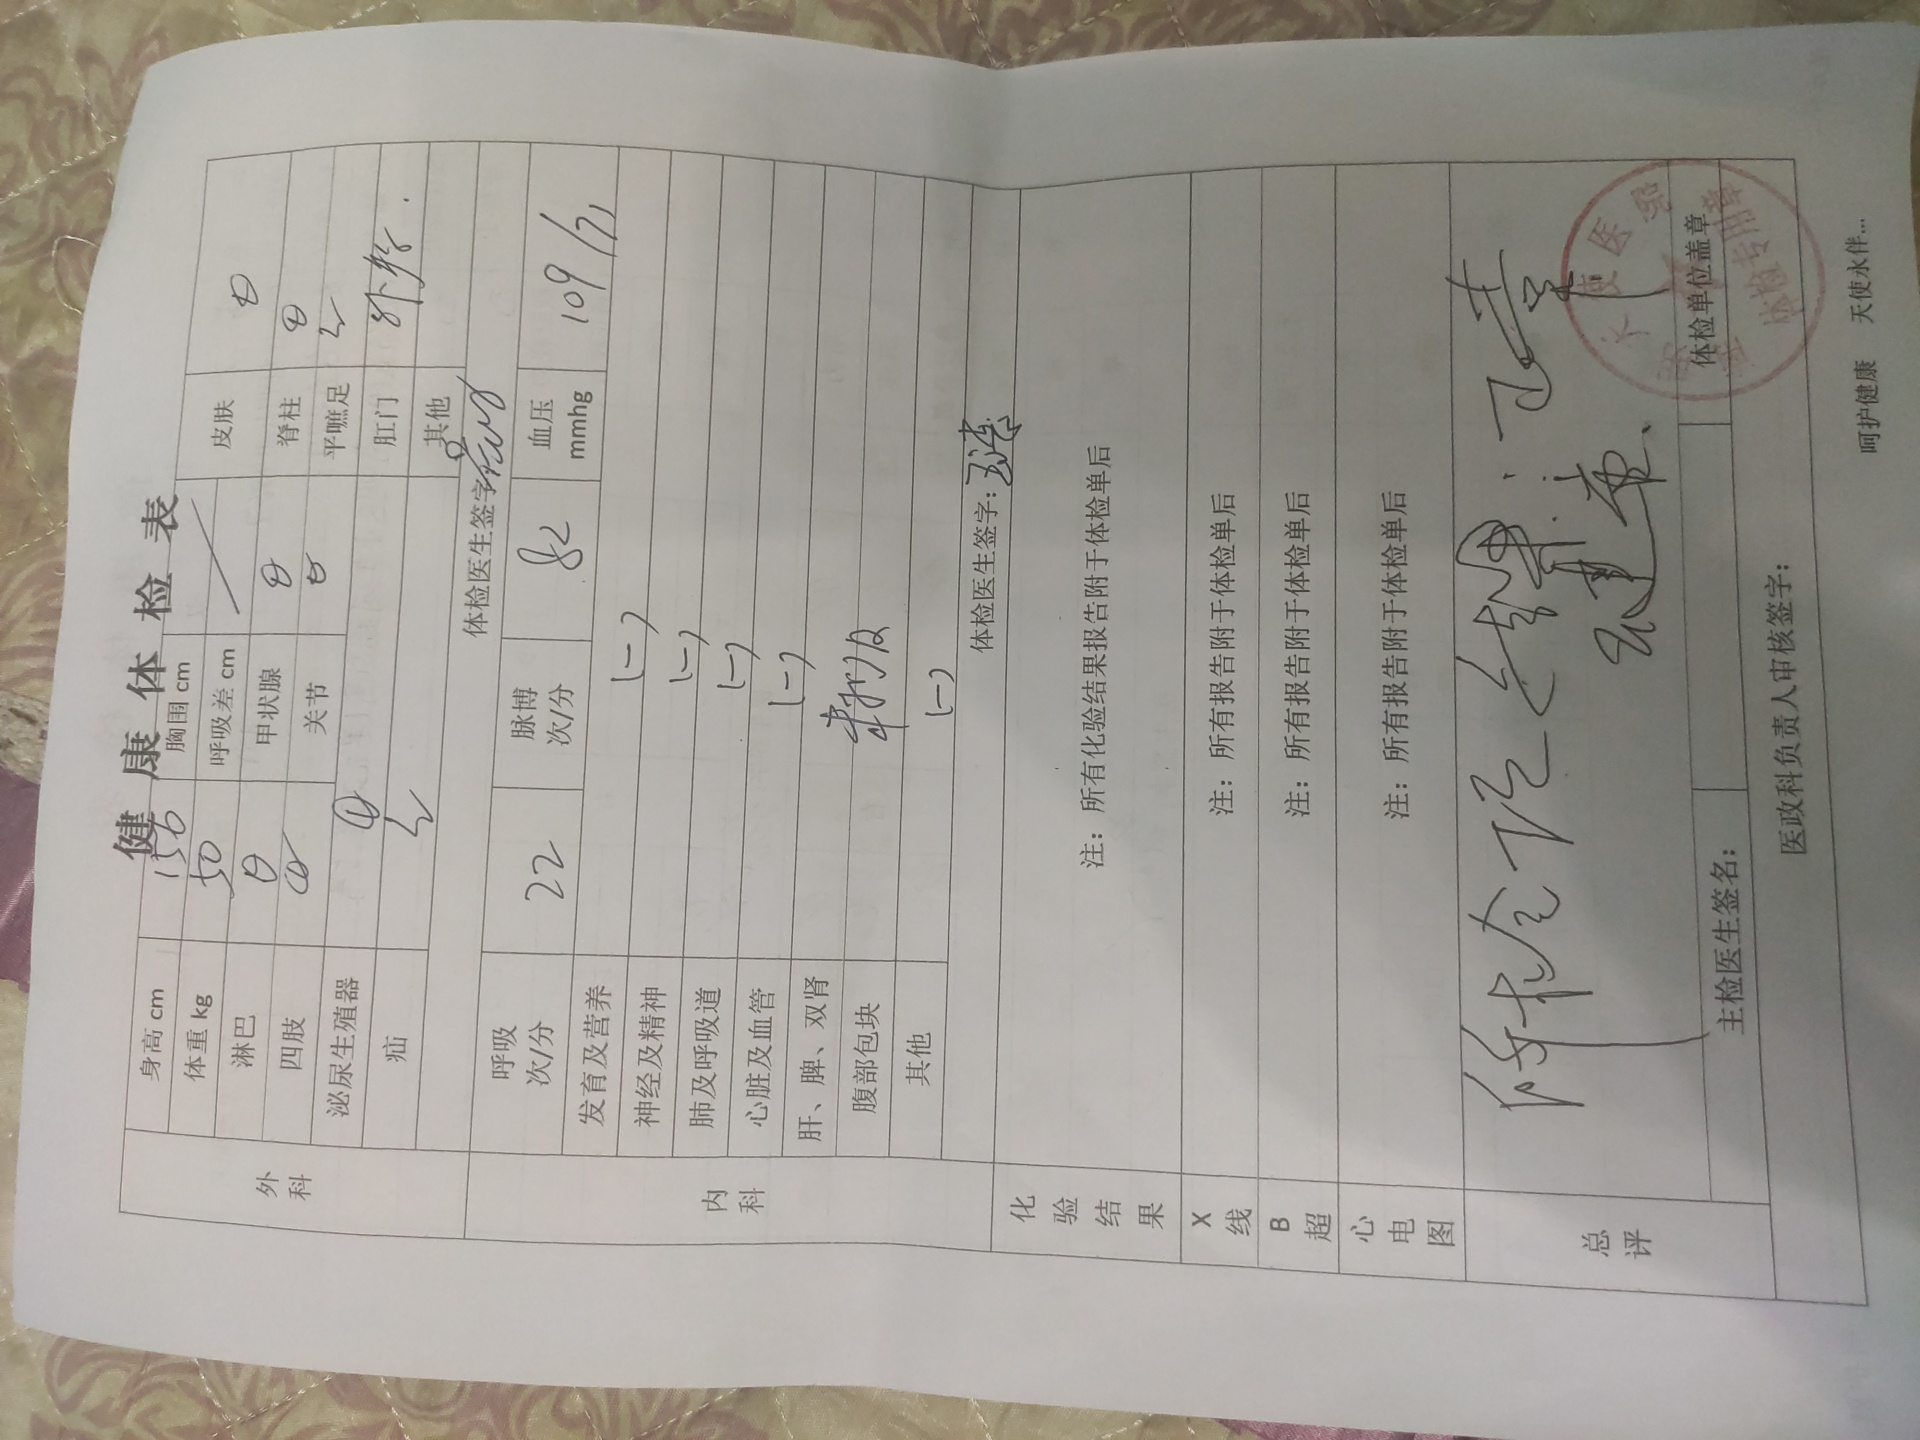 健康体检表
外科
身高 cm 156 胸围 cm 皮肤
体重 kg 50 呼吸差 cm
淋巴 甲状腺 脊柱
四肢 关节 平蹠足
泌尿生殖器 肛门 外痔.
疝 其他
体检医生签字
内科
呼吸 次/分 22 脉博 次/分 82 血压 mmhg 109/71
发育及营养 (-)
神经及精神 (-)
肺及呼吸道 (-)
心脏及血管 (-)
肝、脾、双肾 未扪及
腹部包块
其他 (-)
体检医生签字:
化验结果
注: 所有化验结果报告附于体检单后
X线 注: 所有报告附于体检单后
B超 注: 所有报告附于体检单后
心电图 注: 所有报告附于体检单后
总评 体检结论
主检医生签名: 体检单位盖章
体检专用章
医政科负责人审核签字:
呵护健康 天使永伴...